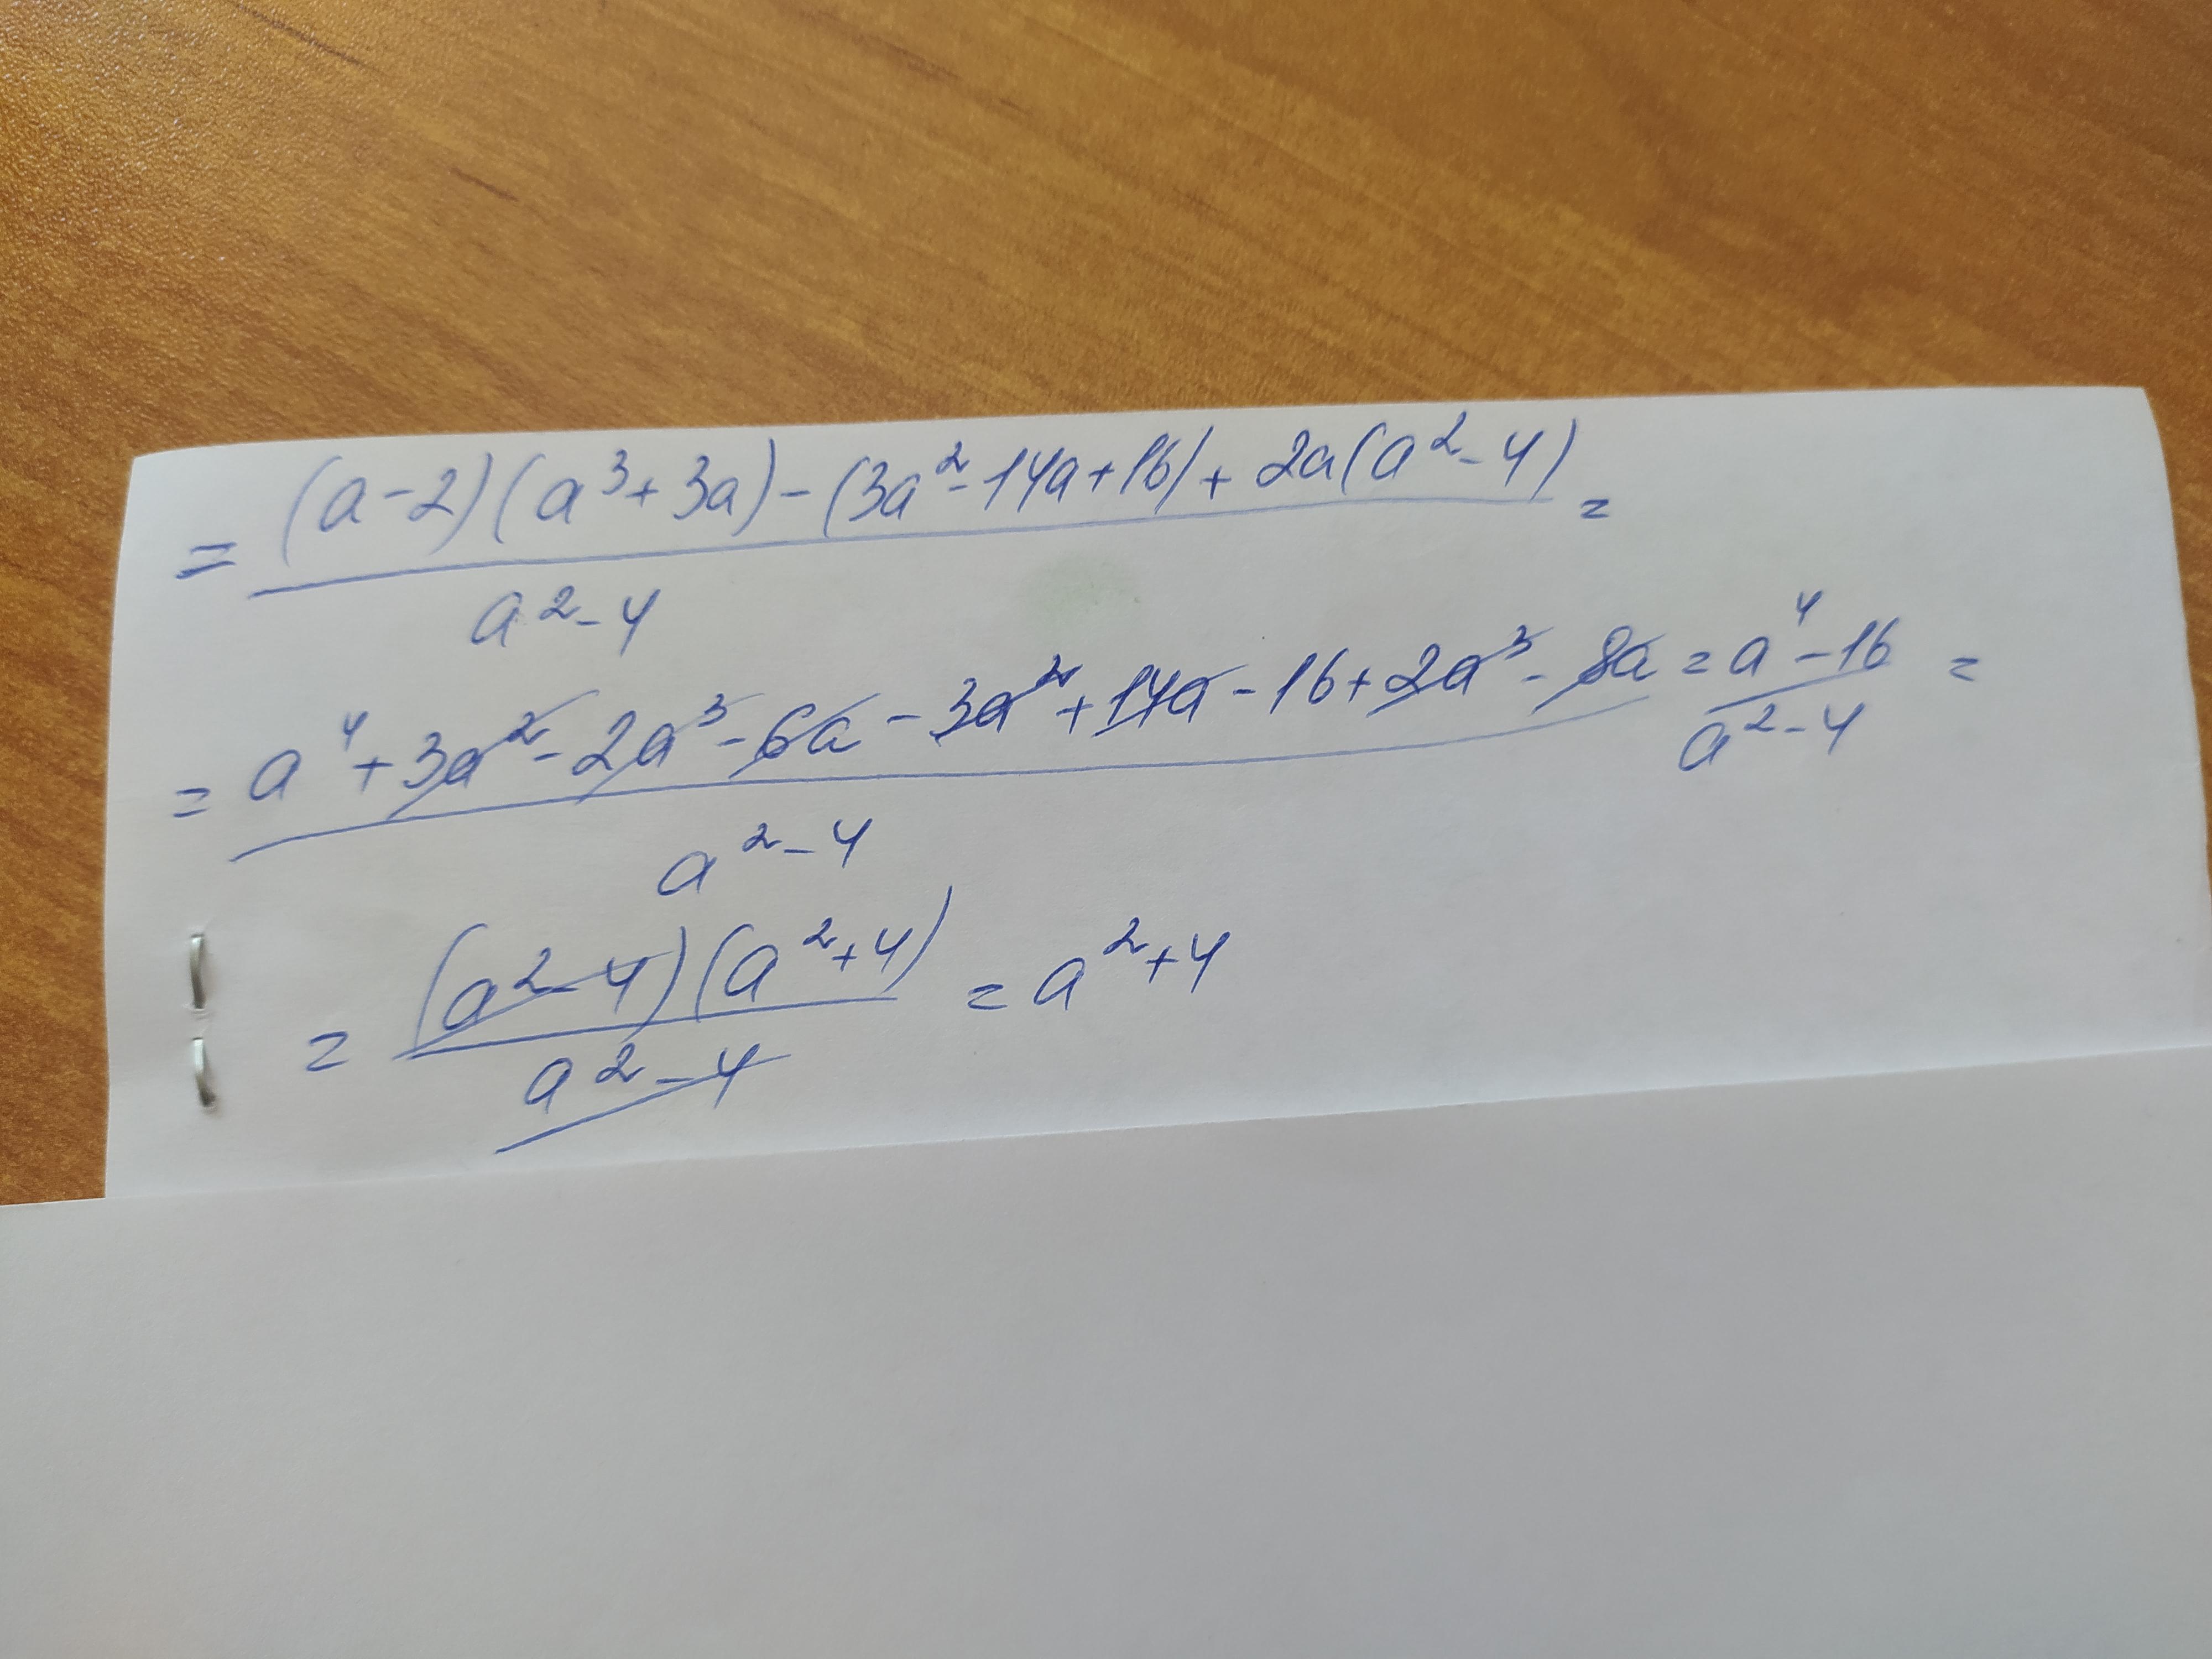 = (a-2)(a³+3a)-(3a²-14a+16)+2a(a²-4) =
a²-4
= a⁴+3a²-2a³-6a-3a²+14a-16+2a³-8a = a⁴-16 =
a²-4 a²-4
= (a²-4)(a²+4) = a²+4
a²-4